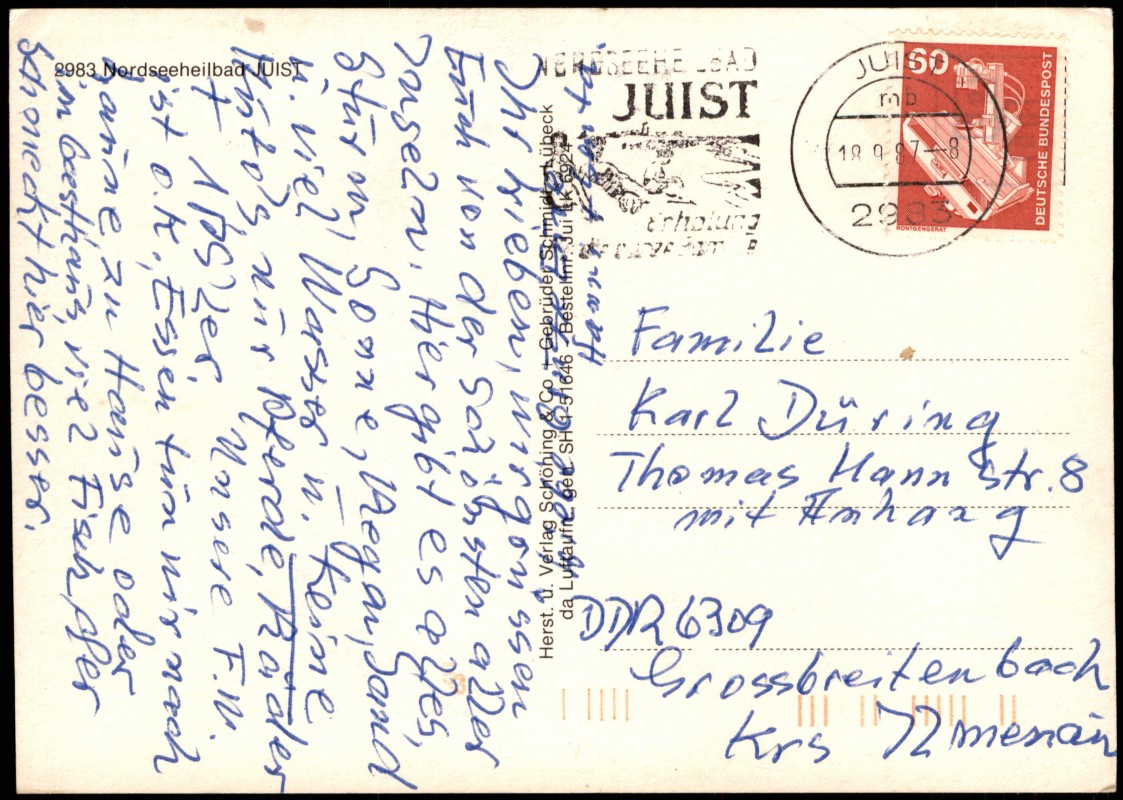 2983 Nordseeheilbad JUIST
NORDSEEHEILBAD
JUIST
Erholung
JUIST
mb
18.9.87-8
2983
60
DEUTSCHE BUNDESPOST
RÖNTGENGERÄT
Ihr Lieben, wir grüssen
Euch von der schönsten aller
Inseln. Hier gibt es alles,
Sturm, Sonne, Regen, Sand
u. viel Wasser u. keine
Autos nur Pferde, Räder
Unsere F.W.
ist o.k., Essen tun wir
zu Hause oder
im viel Fisch aber
schmeckt hier besser.
Herst. u. Verlag Schöning & Co. + Gebrüder Schmidt - Lübeck
da Luftaufn. gen. SH 1-51646 Bestellnr. Jui
Familie
Karl Düring
Thomas Mann Str. 8
mit Anhang
DDR 6309
Grossbreitenbach
Krs Ilmenau